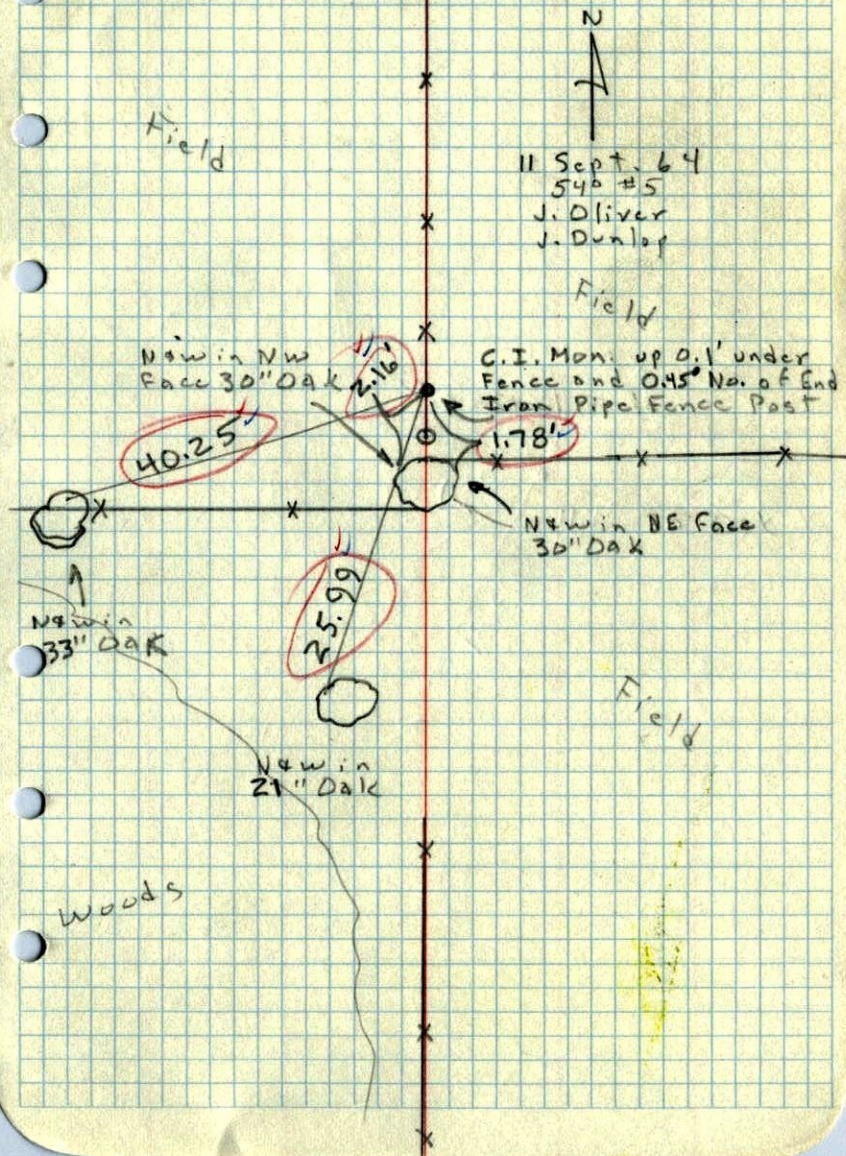 N
Field
11 Sept. 64
54° #5
J. Oliver
J. Dunlop
Field
N&W in NW
Face 30" Oak
2.16'
C.I. Mon. up 0.1' under
Fence and 0.45' No. of End
Iron Pipe Fence Post
40.25
1.78'
N&W in NE Face
30" Oak
25.99
N&W in
33" Oak
Field
N&W in
21" Oak
Woods